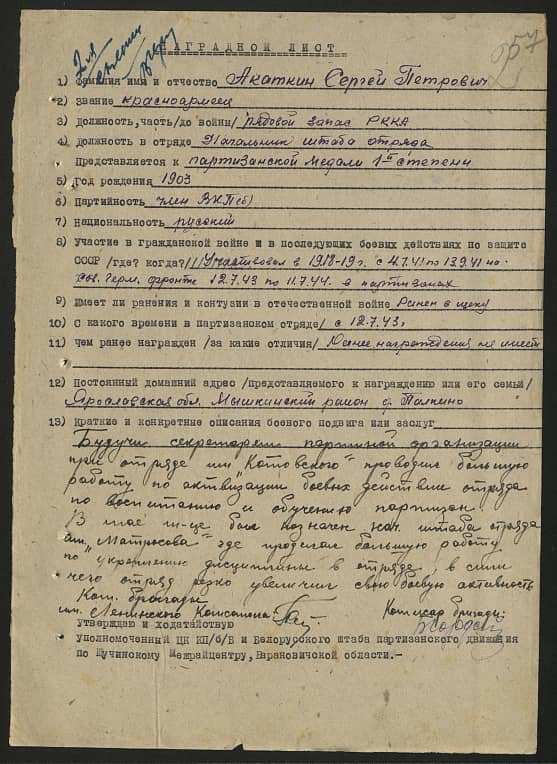 Для
НАГРАДНОЙ ЛИСТ
1) Фамилия имя и отчество Акаткин Сергей Петрович
2) Звание красноармеец
3) Должность,часть/до войны/ рядовой запас РККА
4) Должность в отряде Начальник штаба отряда
Представляется к партизанской медали 1й степени
5) Год рождения 1903
6) Партийность член ВКП(б)
7) Национальность русский
8) Участие в гражданской войне и в последующих боевых действиях по защите
СССР /где? когда?/ Участвовал в 1918-19г. с 4.7.41 по 13.9.41 на
Сов. Герм. фронте 12.7.43 по 11.7.44. в партизанах
9) Имеет ли ранения и контузии в отечественной войне Ранен в щеку
10) С какого времени в партизанском отряде/ с 12.7.43г
11) Чем ранее награжден /за какие отличия/ Ранее награждения не имеет
12) Постоянный домашний адрес /представляемого к награждению или его семьи/
Ярославская обл. Мышкинский район д. Палкино
13) Краткие и конкретные описания боевого подвига или заслуг
Будучи секретарем партийной организации
при отряде им "Котовского" проводил большую
работу по активизации боевых действие отряда
по воспитанию и обучению партизан
В мае м-це был назначен нач. штаба отряда
им. "Матросова" где проделал большую работу
по укреплению дисциплины в отряде, в силу
чего отряд резко увеличил свою боевую активность
Ком. бригады
им. Ленинского Комсомола
Комиссар бригады:
Утверждаю и ходатайствую
Уполномоченный ЦК КП/б/Б и Белорусского штаба партизанского движения
по Щучинскому Межрайцентру, Барановичской области.-